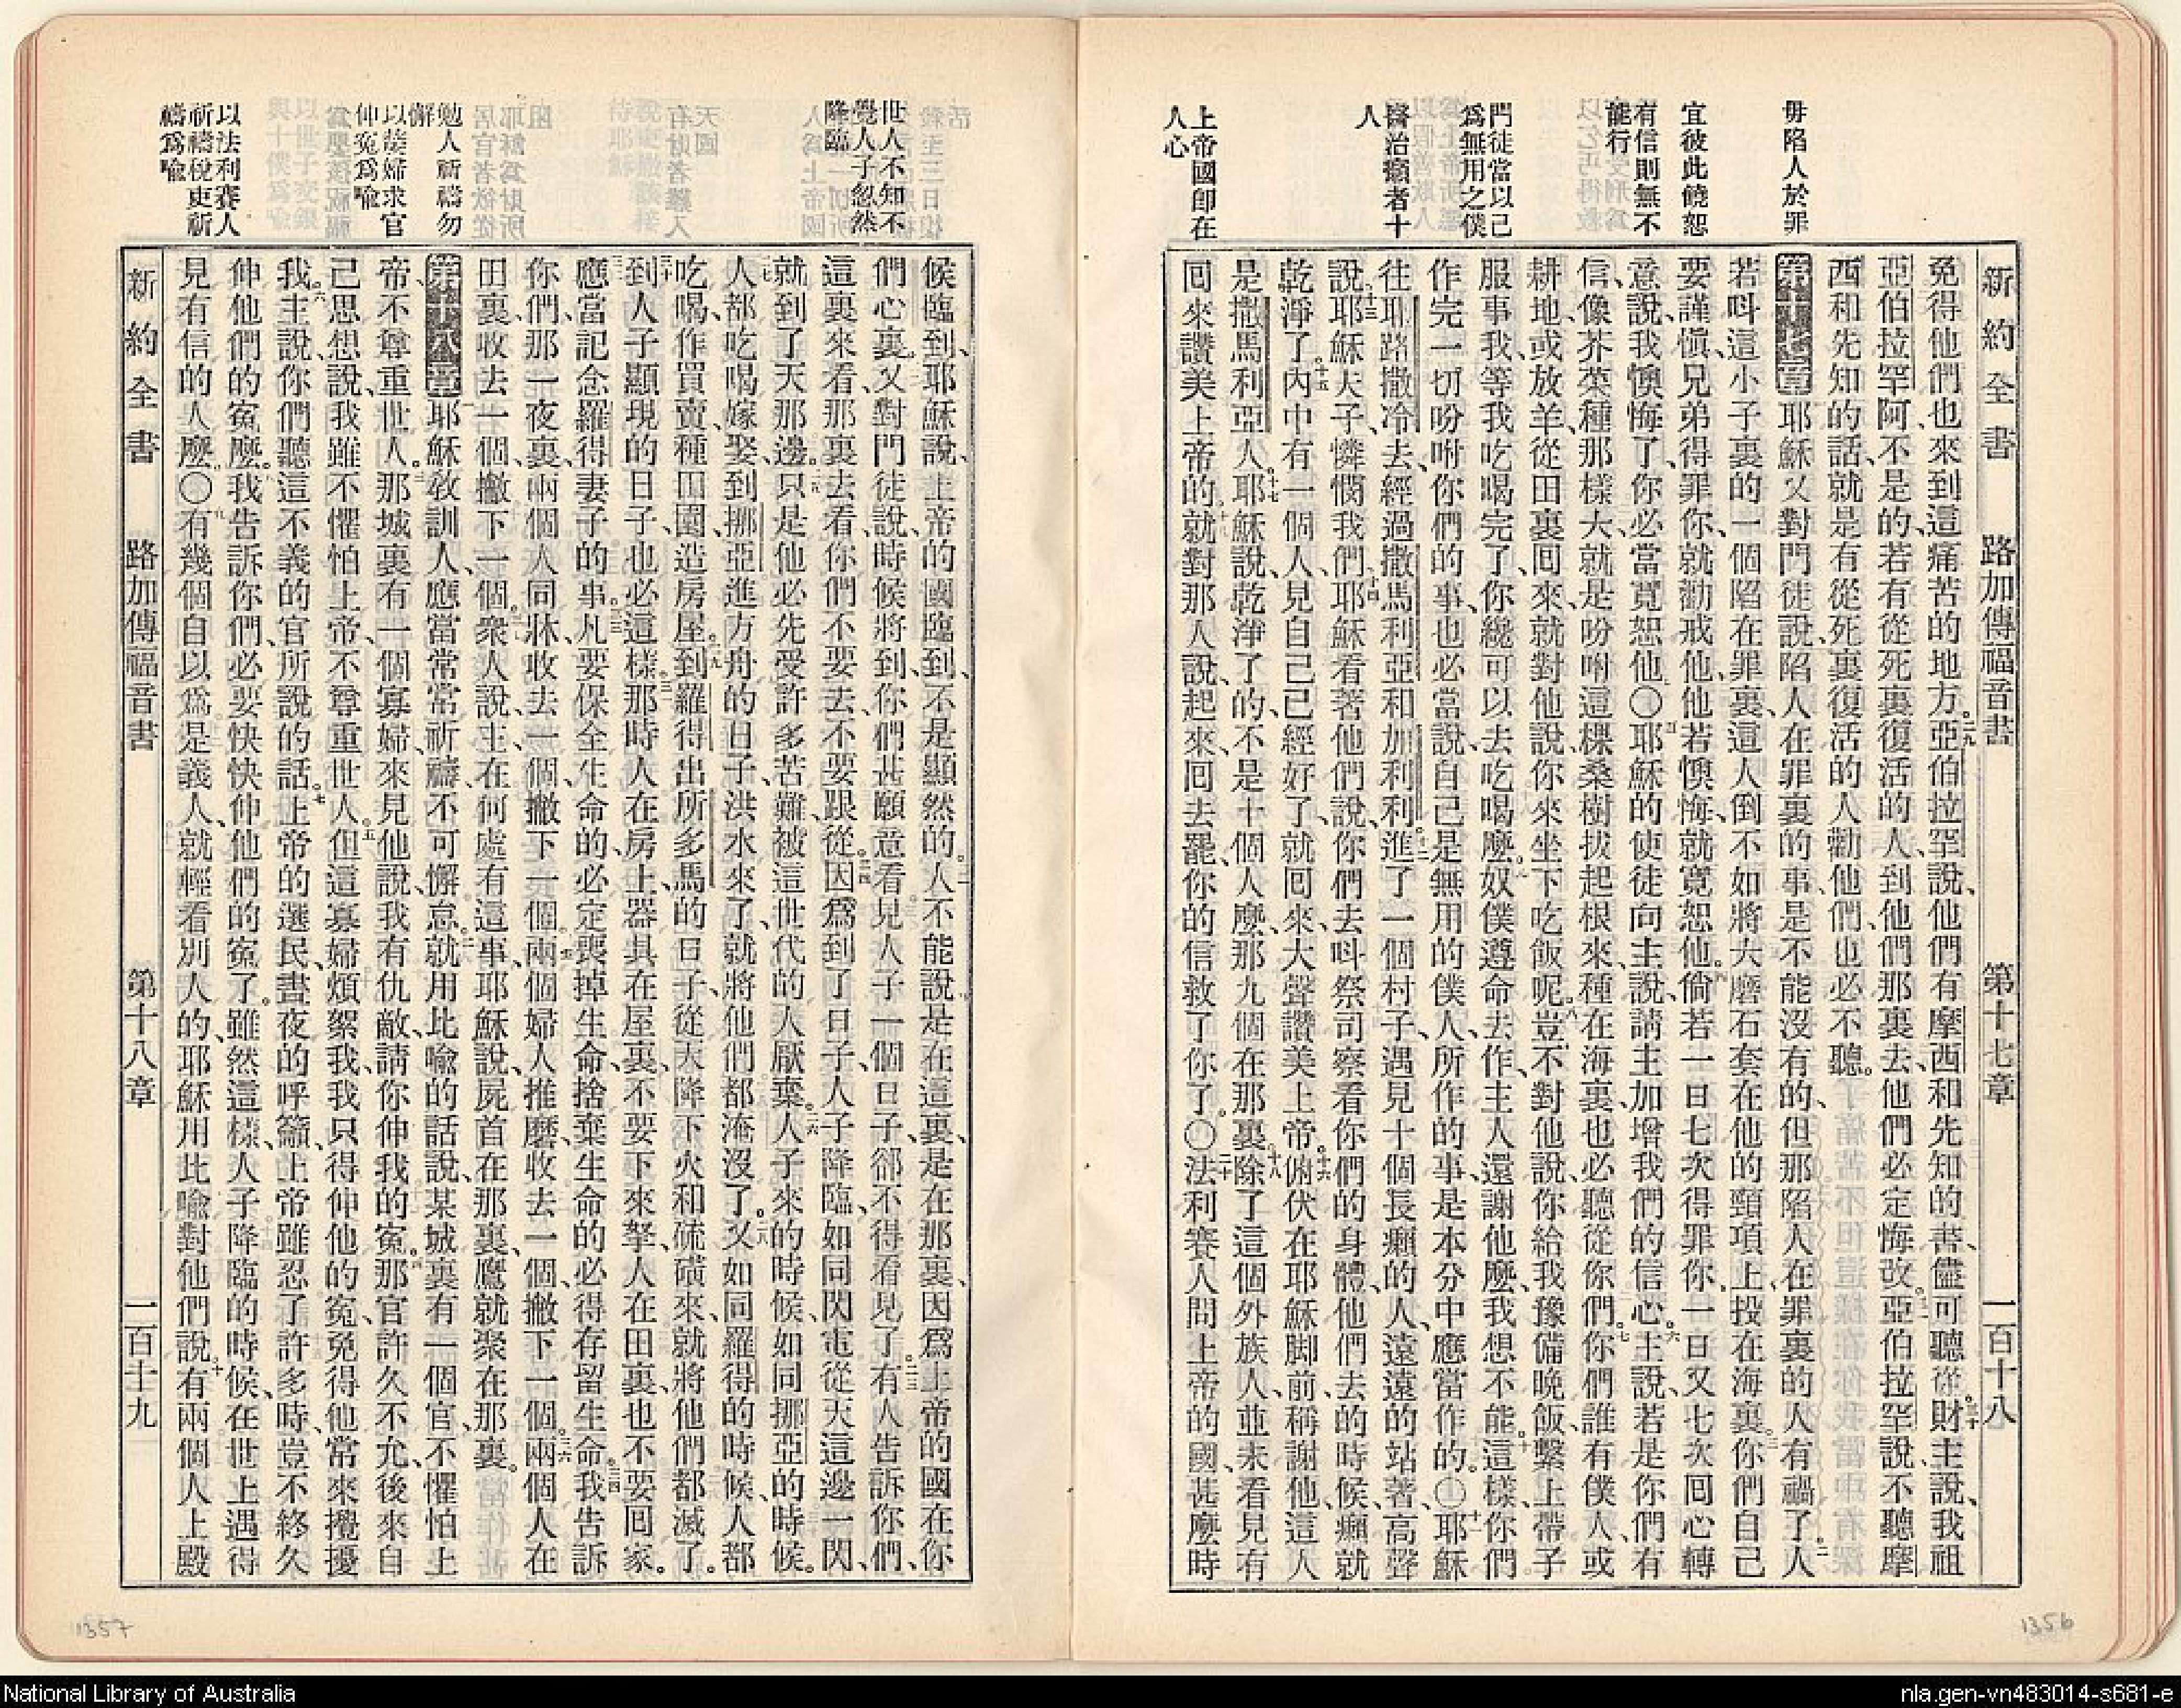 新約全書 路加傳福音書 第十七章 一百十八
毋陷人於罪
宜彼此饒恕
有信則無不能行
門徒當以己爲無用之僕
醫治癩者十人
上帝國卽在人心
免得他們也來到這痛苦的地方。二九亞伯拉罕說、他們有摩西和先知的書、儘可聽從。三十財主說、我祖
亞伯拉罕阿、不是的、若有從死裏復活的人、到他們那裏去、他們必定悔改。三一亞伯拉罕說、不聽摩
西和先知的話、就是有從死裏復活的人勸他們、也必不聽。
第十七章 耶穌又對門徒說、陷人在罪裏的事、是不能沒有的、但那陷人在罪裏的人有禍了。二人
若呌這小子裏的一個陷在罪裏、這人倒不如將大磨石套在他的頸項上、投在海裏。三你們自己
要謹慎、兄弟得罪你、就勸戒他、他若懊悔、就寬恕他。四倘若一日七次得罪你、一日又七次囘心轉
意說、我懊悔了、你必當寬恕他〇五耶穌的使徒向主說、請主加增我們的信心。六主說、若是你們有
信、像芥菜種那樣大、就是吩咐這棵桑樹拔起根來、種在海裏、也必聽從你們。七你們誰有僕人、或
耕地、或放羊、從田裏囘來、就對他說、你來坐下吃飯呢。八豈不對他說、你給我豫備晚飯、繫上帶子
服事我、等我吃喝完了、你纔可以去吃喝麼。九奴僕遵命去作、主人還謝他麼、我想不能。十這樣、你們
作完一切吩咐你們的事、也必當說、自己是無用的僕人、所作的事、是本分中應當作的。〇十一耶穌
往耶路撒冷去、經過撒馬利亞和加利利。十二進了一個村子、遇見十個長癩的人、遠遠的站著、高聲
說、十三耶穌夫子、憐憫我們、十四耶穌看著他們說、你們去呌祭司察看你們的身體、他們去的時候、癩就
乾淨了。十五內中有一個人、見自己已經好了、就囘來、大聲讚美上帝。十六俯伏在耶穌脚前、稱謝他、這人
是撒馬利亞人。十七耶穌說、乾淨了的、不是十個人麼、那九個在那裏。十八除了這個外族人、並未看見有
囘來讚美上帝的。十九就對那人說、起來、囘去罷、你的信救了你了。〇二十法利賽人問上帝的國、甚麼時
1356
世人不知不覺人子忽然降臨
勉人祈禱勿懈
以嫠婦求官伸冤爲喻
以法利賽人祈禱稅吏祈禱爲喻
候臨到、耶穌說、上帝的國臨到、不是顯然的。二一人不能說是在這裏、是在那裏、因爲上帝的國在你
們心裏。二二又對門徒說、時候將到、你們甚願意看見人子一個日子、卻不得看見了。二三有人告訴你們、
這裏來看、那裏去看、你們不要去、不要跟從。二四因爲到了日子、人子降臨、如同閃電從天這邊一閃、
就到了天那邊。二五只是他必先受許多苦難、被這世代的人厭棄。二六人子來的時候、如同挪亞的時候。
二七人都吃喝嫁娶、到挪亞進方舟的日子、洪水來了、就將他們都淹沒了。二八又如同羅得的時候、人都
吃喝、作買賣、種田園、造房屋。二九到羅得出所多馬的日子、從天降下火和硫磺來、就將他們都滅了。
三十到人子顯現的日子、也必這樣。三一那時人在房上、器具在屋裏、不要下來拏、人在田裏、也不要囘家。
三二應當記念羅得妻子的事。三三凡要保全生命的、必定喪掉生命、捨棄生命的、必得存留生命。三四我告訴
你們、那一夜裏、兩個人同牀、收去一個、撇下一個。三五兩個婦人推磨、收去一個、撇下一個。三六兩個人在
田裏、收去一個、撇下一個。三七衆人說、主、在何處有這事、耶穌說、屍首在那裏、鷹就聚在那裏。
第十八章 一耶穌敎訓人應當常常祈禱、不可懈怠。二就用比喻的話說、某城裏有一個官、不懼怕上
帝、不尊重世人。三那城裏有一個寡婦、來見他說、我有仇敵、請你伸我的冤。四那官許久不允、後來自
己思想說、我雖不懼怕上帝、不尊重世人。五但這寡婦煩絮我、我只得伸他的冤、免得他常來攪擾
我。六主說、你們聽這不義的官所說的話。七上帝的選民、晝夜的呼籲、上帝雖忍了許多時、豈不終久
伸他們的冤麼。八我告訴你們、必要快快伸他們的冤了。雖然這樣、人子降臨的時候、在世上遇得
見有信的人麼。〇九有幾個自以爲是義人、就輕看別人的、耶穌用此喻對他們說、十有兩個人上殿
新約全書 路加傳福音書 第十八章 一百十九
1357
National Library of Australia
nla.gen-vn483014-s681-e